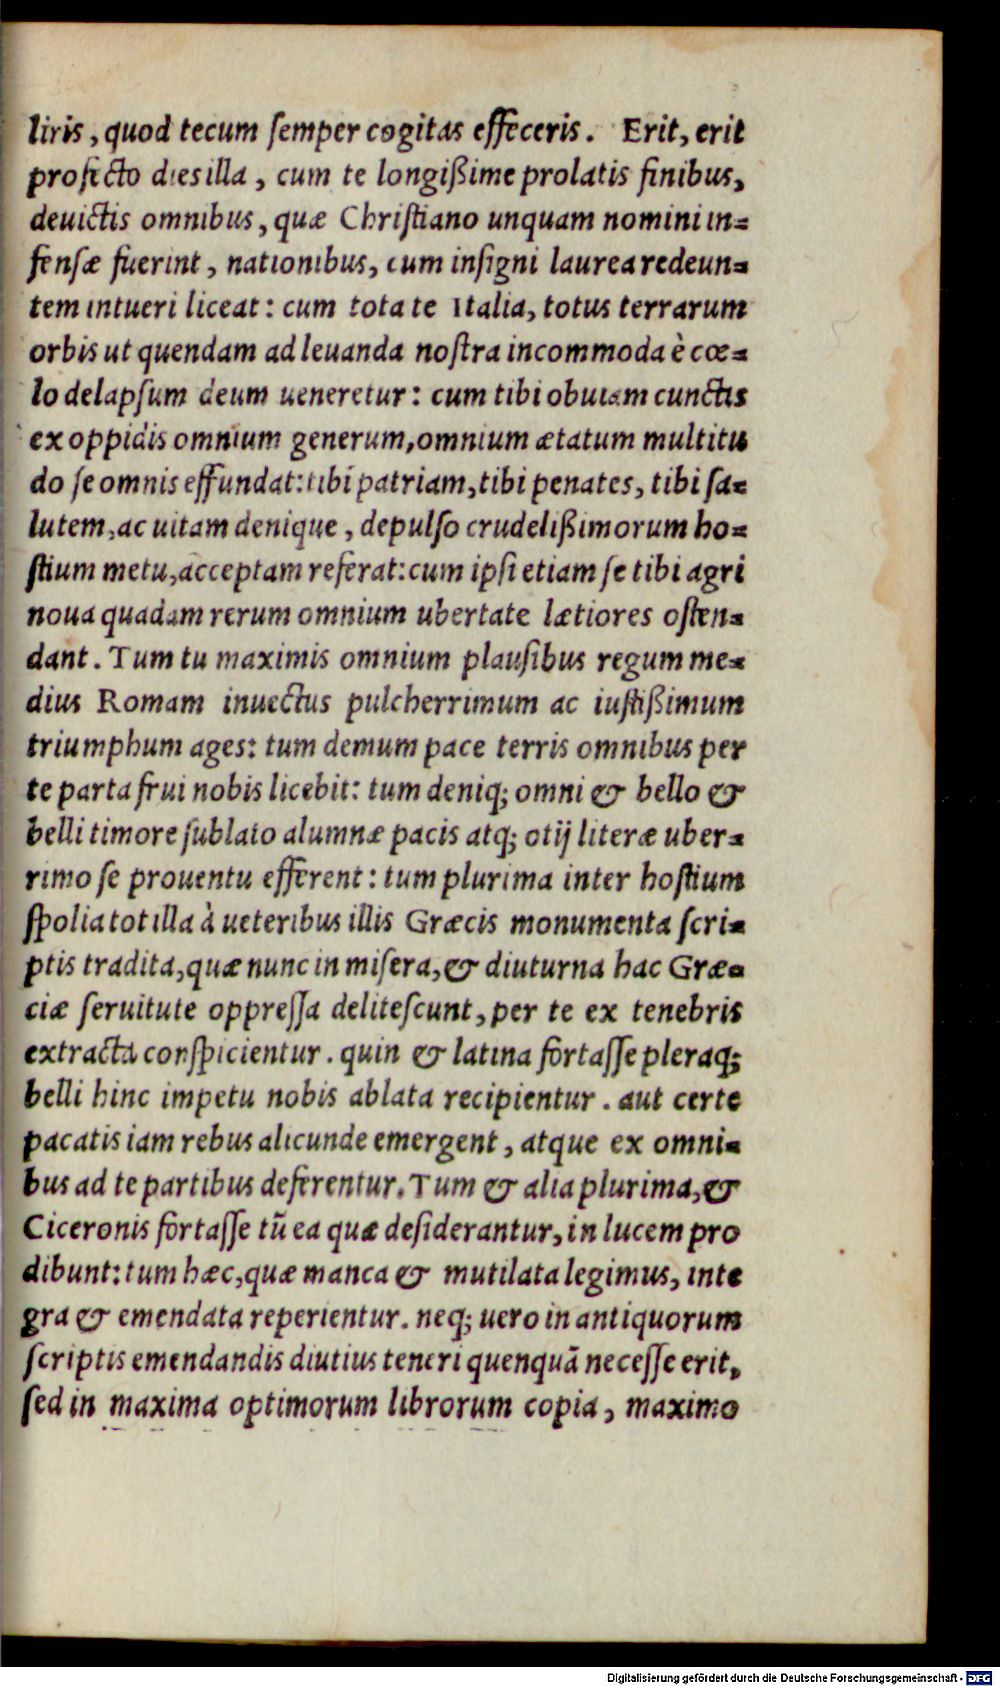 liris, quod tecum ſemper cogitas effeceris. Erit, erit
profecto dies illa, cum te longißime prolatis finibus,
deuictis omnibus, quæ Chriſtiano unquam nomini in=
fenſæ fuerint, nationibus, cum inſigni laurea redeun=
tem intueri liceat: cum tota te Italia, totus terrarum
orbis ut quendam ad leuanda noſtra incommoda è cœ=
lo delapſum deum ueneretur: cum tibi obuiam cunctis
ex oppidis omnium generum, omnium ætatum multitu
do ſe omnis effundat: tibi patriam, tibi penates, tibi ſa=
lutem, ac uitam denique, depulſo crudelißimorum ho=
ſtium metu, acceptam referat: cum ipſi etiam ſe tibi agri
noua quadam rerum omnium ubertate lætiores oſten=
dant. Tum tu maximis omnium plauſibus regum me=
dius Romam inuectus pulcherrimum ac iuſtißimum
triumphum ages: tum demum pace terris omnibus per
te parta frui nobis licebit: tum deniq; omni & bello &
belli timore ſublato alumnæ pacis atq; otij literæ uber=
rimo ſe prouentu efferent: tum plurima inter hoſtium
ſpolia tot illa à ueteribus illis Græcis monumenta ſcri=
ptis tradita, quæ nunc in miſera, & diuturna hac Græ=
ciæ ſeruitute oppreſſa deliteſcunt, per te ex tenebris
extracta conſpicientur. quin & latina fortaſſe pleraq;
belli hinc impetu nobis ablata recipientur. aut certe
pacatis iam rebus alicunde emergent, atque ex omni=
bus ad te partibus deferentur. Tum & alia plurima, &
Ciceronis fortaſſe tũ ea quæ deſiderantur, in lucem pro
dibunt: tum hæc, quæ manca & mutilata legimus, inte
gra & emendata reperientur. neq; uero in antiquorum
ſcriptis emendandis diutius teneri quenquã neceſſe erit,
ſed in maxima optimorum librorum copia, maximo
Digitalisierung gefördert durch die Deutsche Forschungsgemeinschaft - DFG